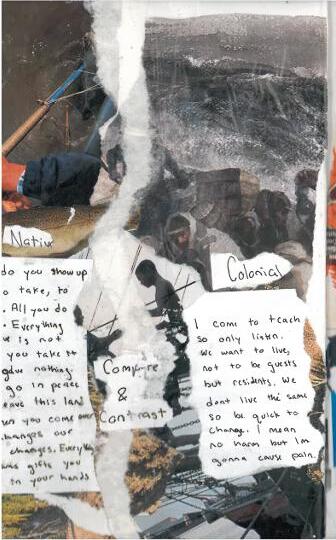 Native
do you show up
take, to
. All you do
. Everything
is not
you take it
nothing
go in peace
leave this land
you come over
changes our
changes. Everything
was gifts you
in your hands
Compare
&
Contrast
Colonial
I come to teach
so only listen.
We want to live,
not to be guests
but residents. We
dont live the same
so be quick to
change. I mean
no harm but Im
gonna cause pain.